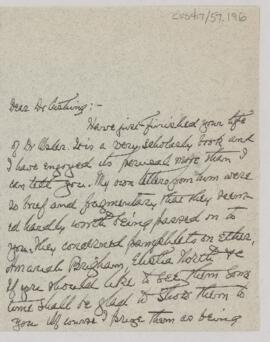 cus417/57.196
Dear Dr Cushing:-
Have just finished your life
of Dr Osler. It is a very scholarly book and
I have enjoyed its perusal more than I
can tell you. My own letters from him were
so brief and fragmentary that they seem
ed hardly worth being passed on to
you. They concerned pamphlets on Ether,
Amariah Brigham, Elisha North &c
If you should like to see them some
time shall be glad to show them to
you. Of course I prize them as being